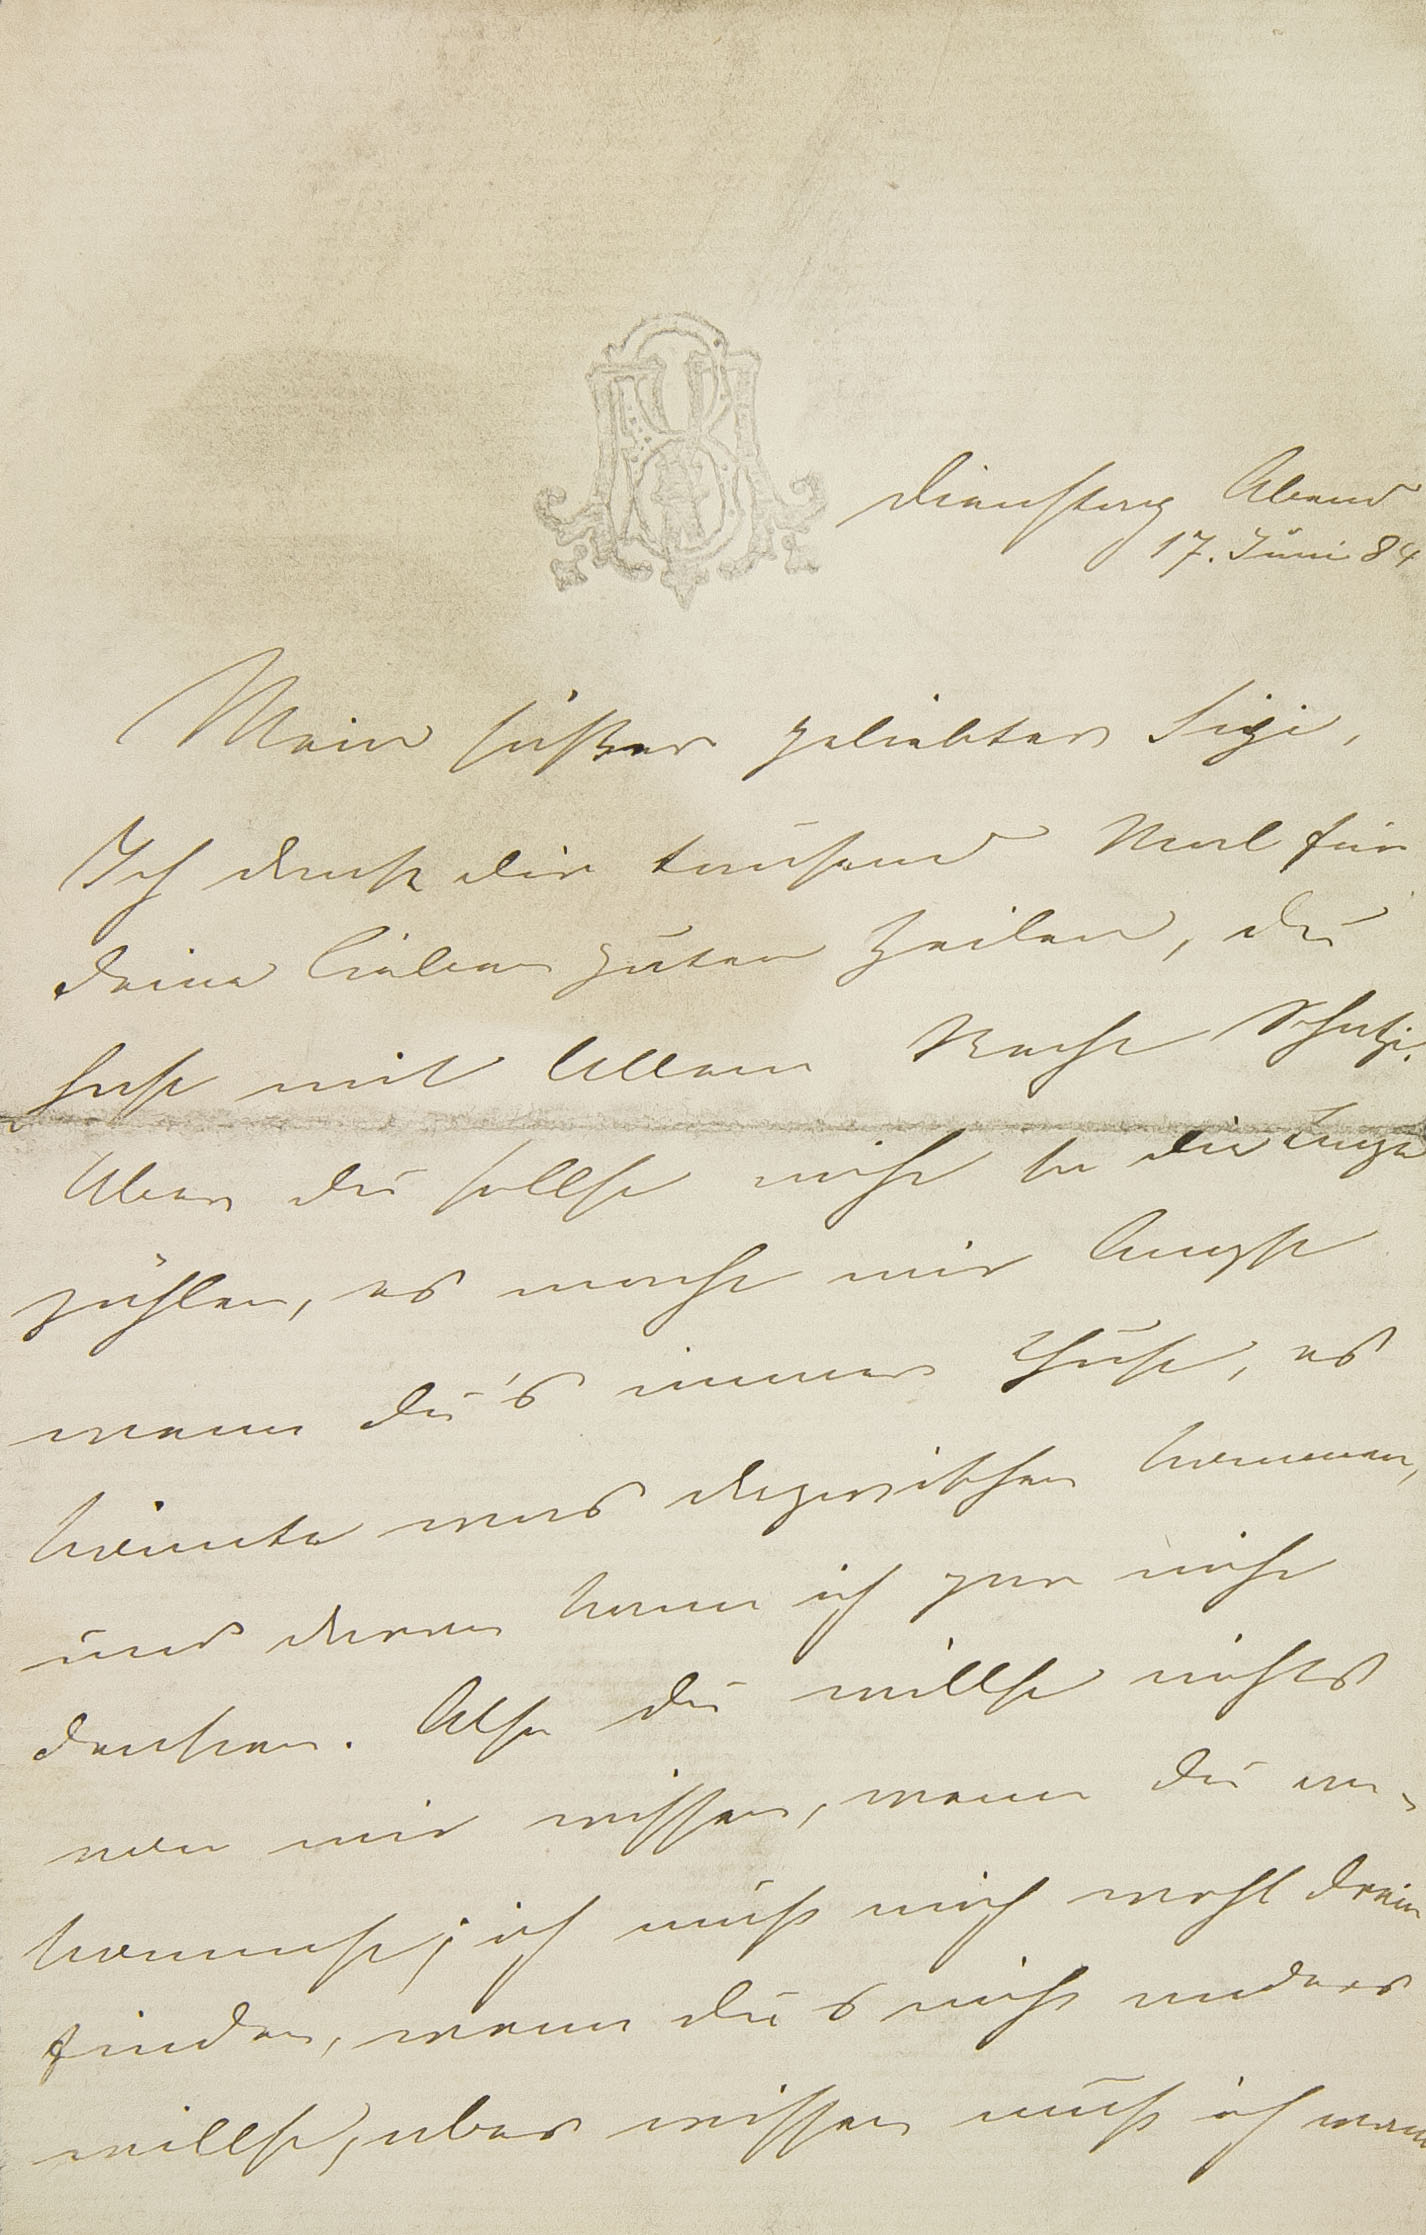 Dienstag Abend
17. Juni 84
Mein süßer geliebter Sigi,
Ich dank dir tausend Mal für
deine lieben guten Zeilen, du
hast mit Allem Recht Schatzi.
Aber du sollst nicht so die Tage
zählen, es macht mir Angst
wenn du's immer thust, es
könnte was dazwischen kommen,
und daran kann ich gar nicht
denken. Also du willst nichts
von mir wissen, wenn du an-
kommst; ich muß mich wohl drein
finden, wenn du's nicht anders
willst, aber wissen muß ich wann